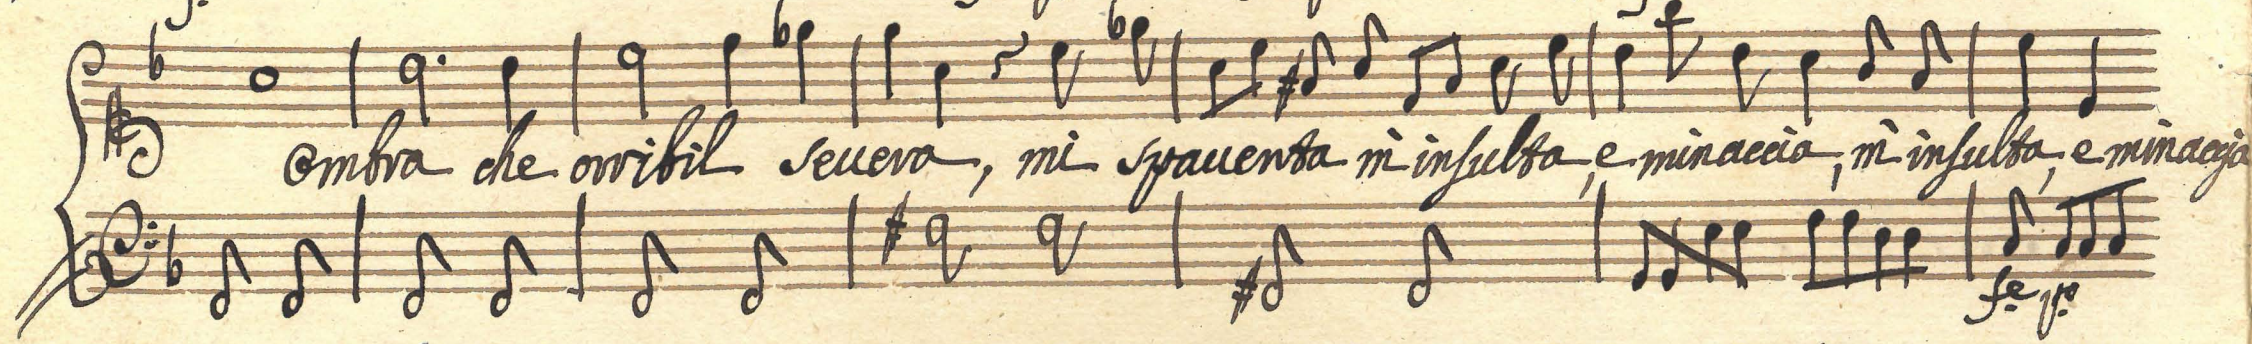 ombra che orribil severa, mi spaventa m'insulta, e minaccia, m'insulta, e minaccia
fe. p.